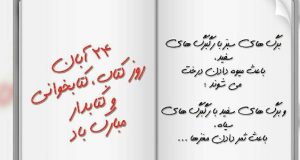 برگ های سبز با رگبرگ های
سفید،
باعث میوه دادن درخت
می شوند؛
و برگ های سفید با رگبرگ های
سیاه،
باعث ثمر دادن مغزها ...
۲۴ آبان
روز کتاب، کتابخوانی
و
کتابدار
مبارک باد